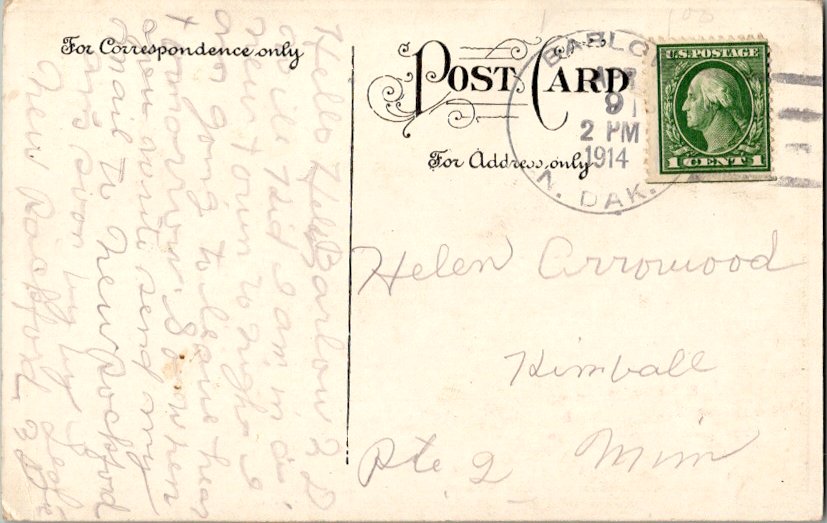 For Correspondence only
POST CARD
For Address only
BARLOW
9
2 PM
1914
N. DAK.
U.S. POSTAGE
1 CENT 1
Helen Arrowood
Kimball
Rte 2 Minn
Barlow N D
Kid I am in
town to night
am going to leave here
tomorrow So when
you write send my
mail to New Rockford
New Rockford